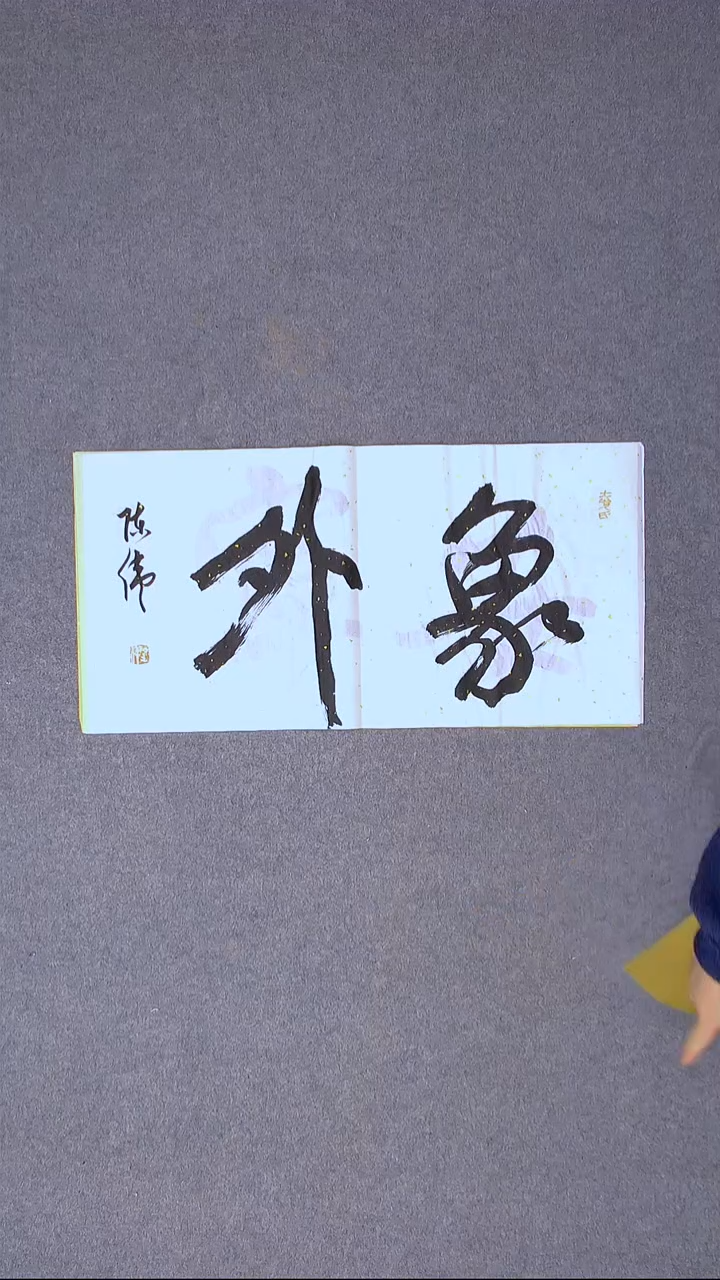 象外
陈伟